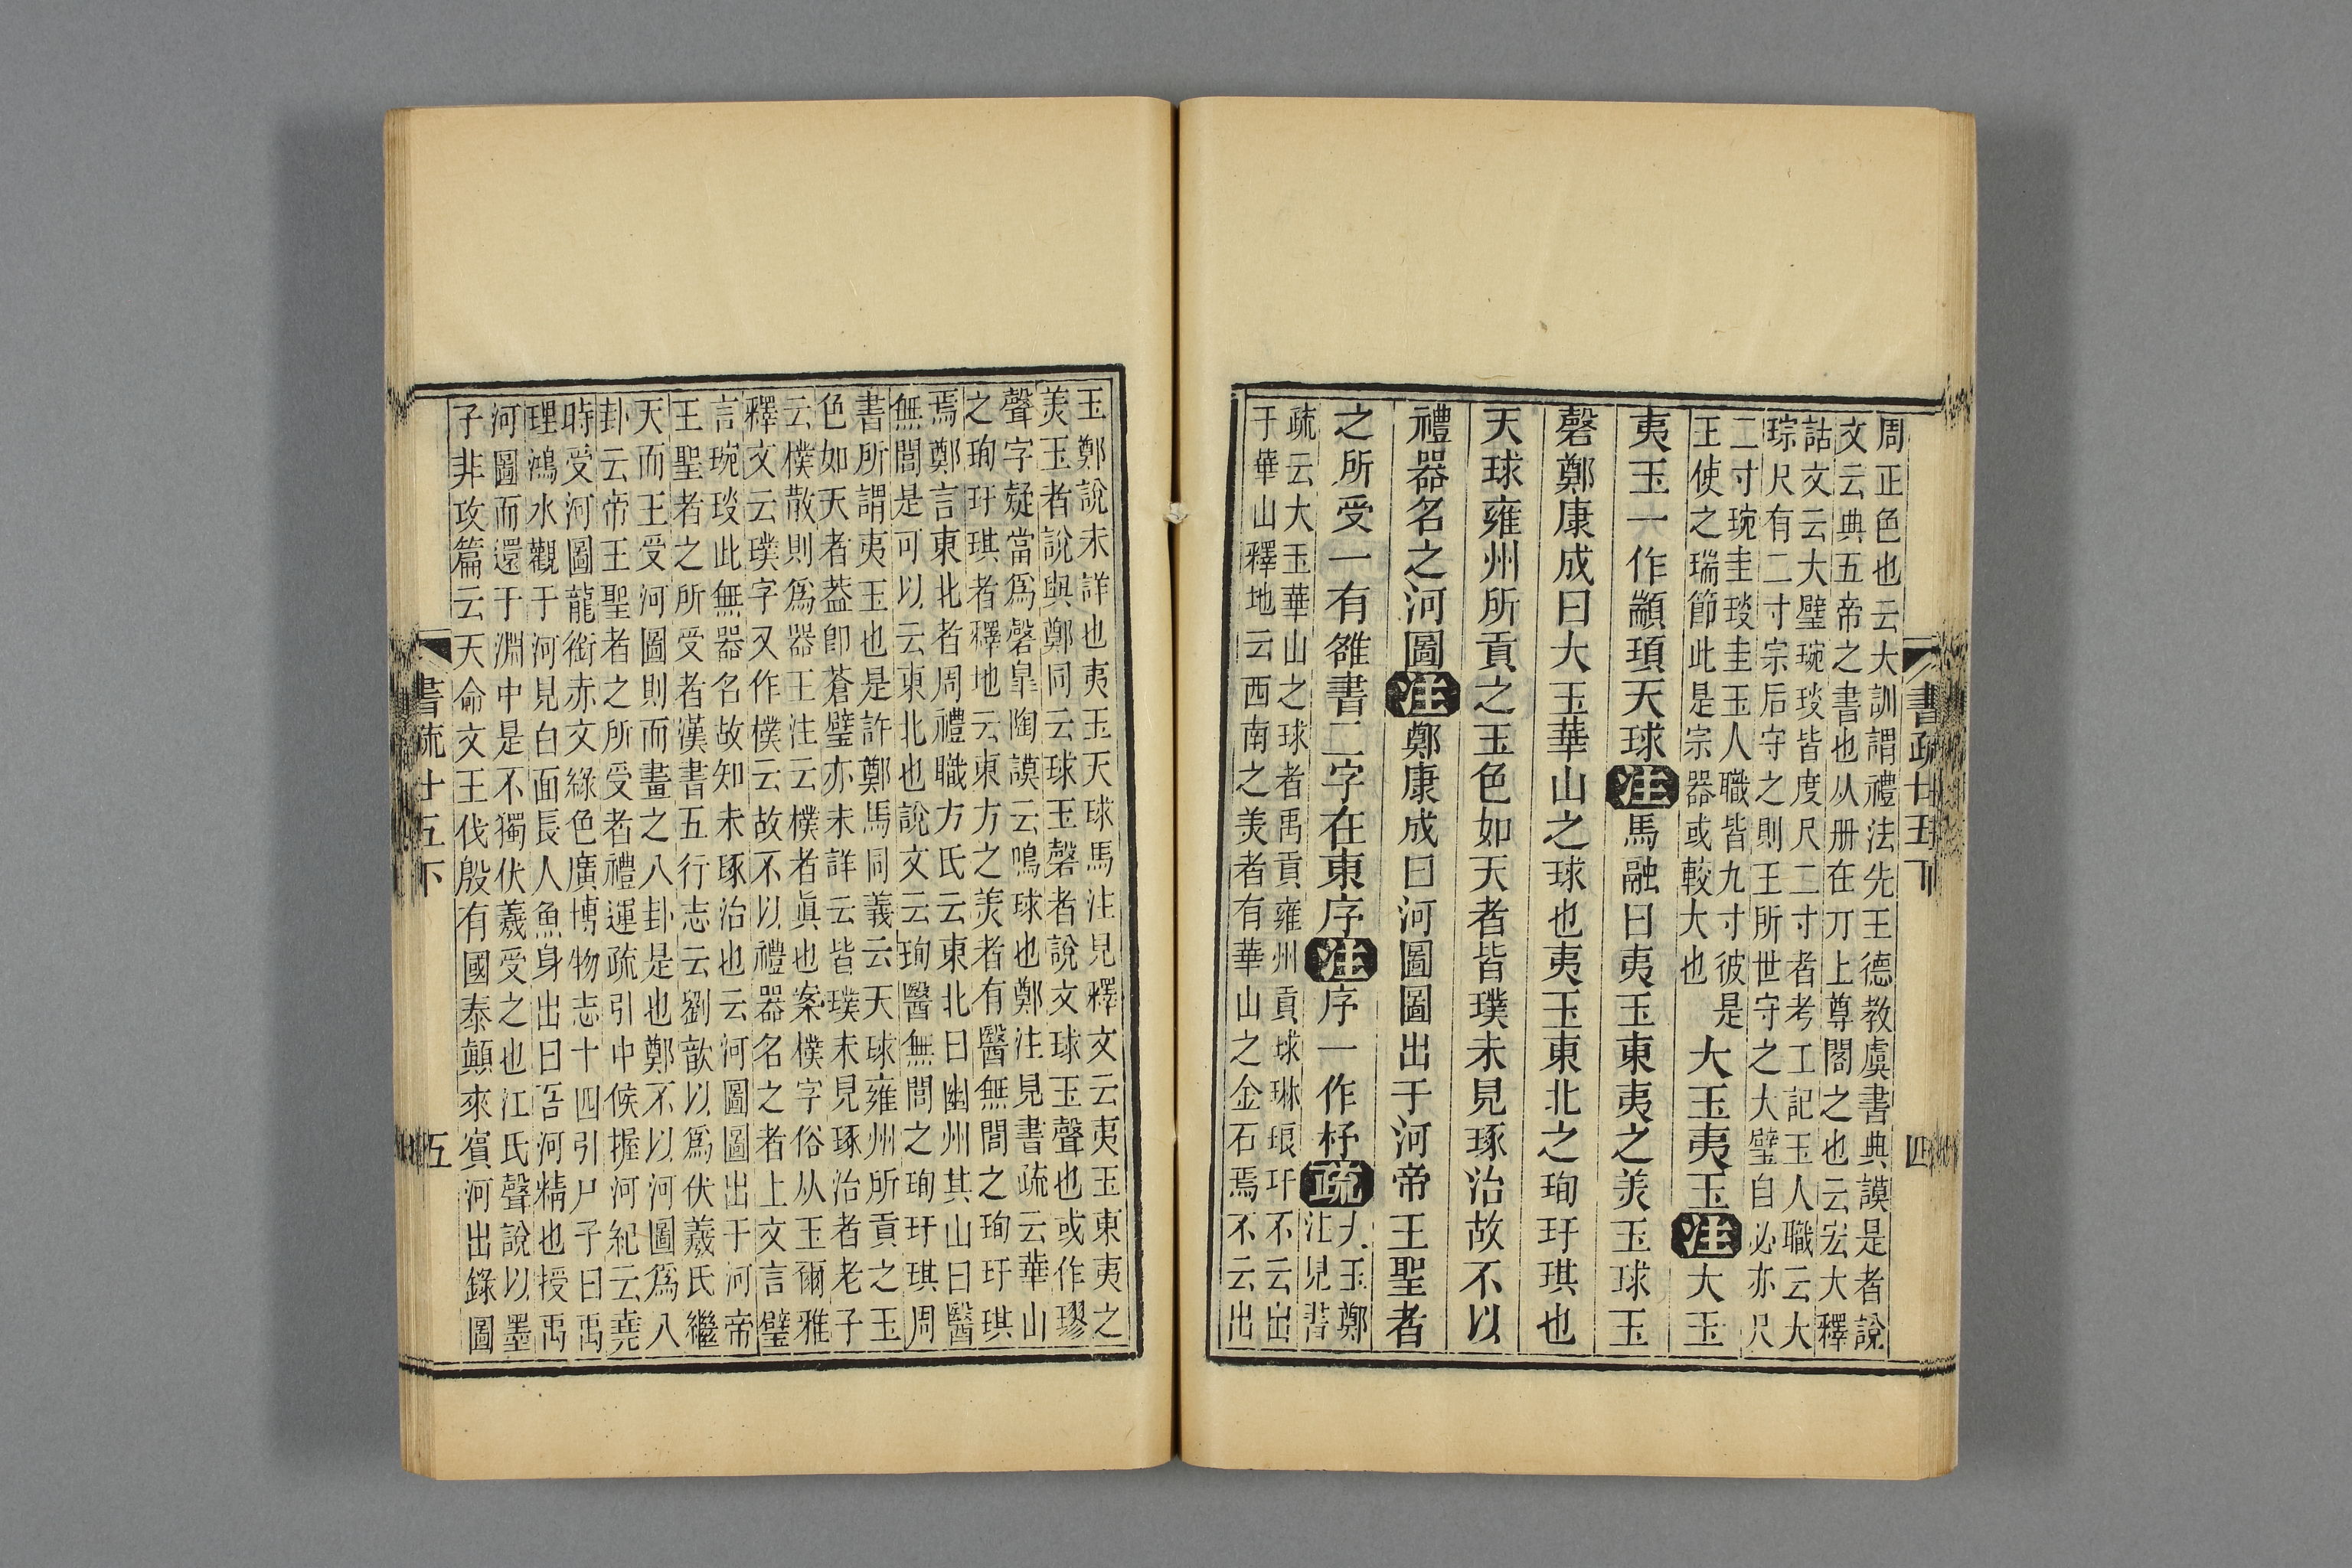 周正色也云大訓謂禮法先王德教虞書典謨是者說
文云典五帝之書也从册在丌上尊閣之也云宏大釋
詁文云大璧琬琰皆度尺二寸者考工記玉人職云大
琮尺有二寸宗后守之則王所世守之大璧自必亦尺
二寸琬圭琰圭玉人職皆九寸彼是
王使之瑞節此是宗器或較大也
大玉夷玉注大玉
夷玉一作顓頊天球注馬融曰夷玉東夷之美玉球玉
磬鄭康成曰大玉華山之球也夷玉東北之珣玗琪也
天球雍州所貢之玉色如天者皆璞未見琢治故不以
禮器名之河圖注鄭康成曰河圖圖出于河帝王聖者
之所受一有雒書二字在東序注序一作杼疏
大玉鄭
注見書
疏云大玉華山之球者禹貢雍州貢球琳琅玕不云出
于華山釋地云西南之美者有華山之金石焉不云出
書疏廿五下
四
玉鄭說未詳也夷玉天球馬注見釋文云夷玉東夷之
美玉者說與鄭同云球玉磬者說文球玉聲也或作璆
聲字疑當爲磬皐陶謨云鳴球也鄭注見書疏云華山
之珣玗琪者釋地云東方之美者有醫無閭之珣玗琪
焉鄭言東北者周禮職方氏云東北曰幽州其山曰醫
無閭是可以云東北也說文云珣醫無閭之珣玗琪周
書所謂夷玉也是許鄭馬同義云天球雍州所貢之玉
色如天者葢卽蒼璧亦未詳云皆璞未見琢治者老子
云樸散則爲器王注云樸者眞也案樸字俗从玉爾雅
釋文云璞字又作樸云故不以禮器名之者上文言璧
言琬琰此無器名故知未琢治也云河圖圖出于河帝
王聖者之所受者漢書五行志云劉歆以爲伏羲氏繼
天而王受河圖則而畫之八卦是也鄭不以河圖爲八
卦云帝王聖者之所受者禮運疏引中候握河紀云堯
時受河圖龍銜赤文綠色廣博物志十四引尸子曰禹
理鴻水觀于河見白面長人魚身出曰吾河精也授禹
河圖而還于淵中是不獨伏羲受之也江氏聲說以墨
子非攻篇云天命文王伐殷有國泰顛來賓河出錄圖
書疏廿五下
五